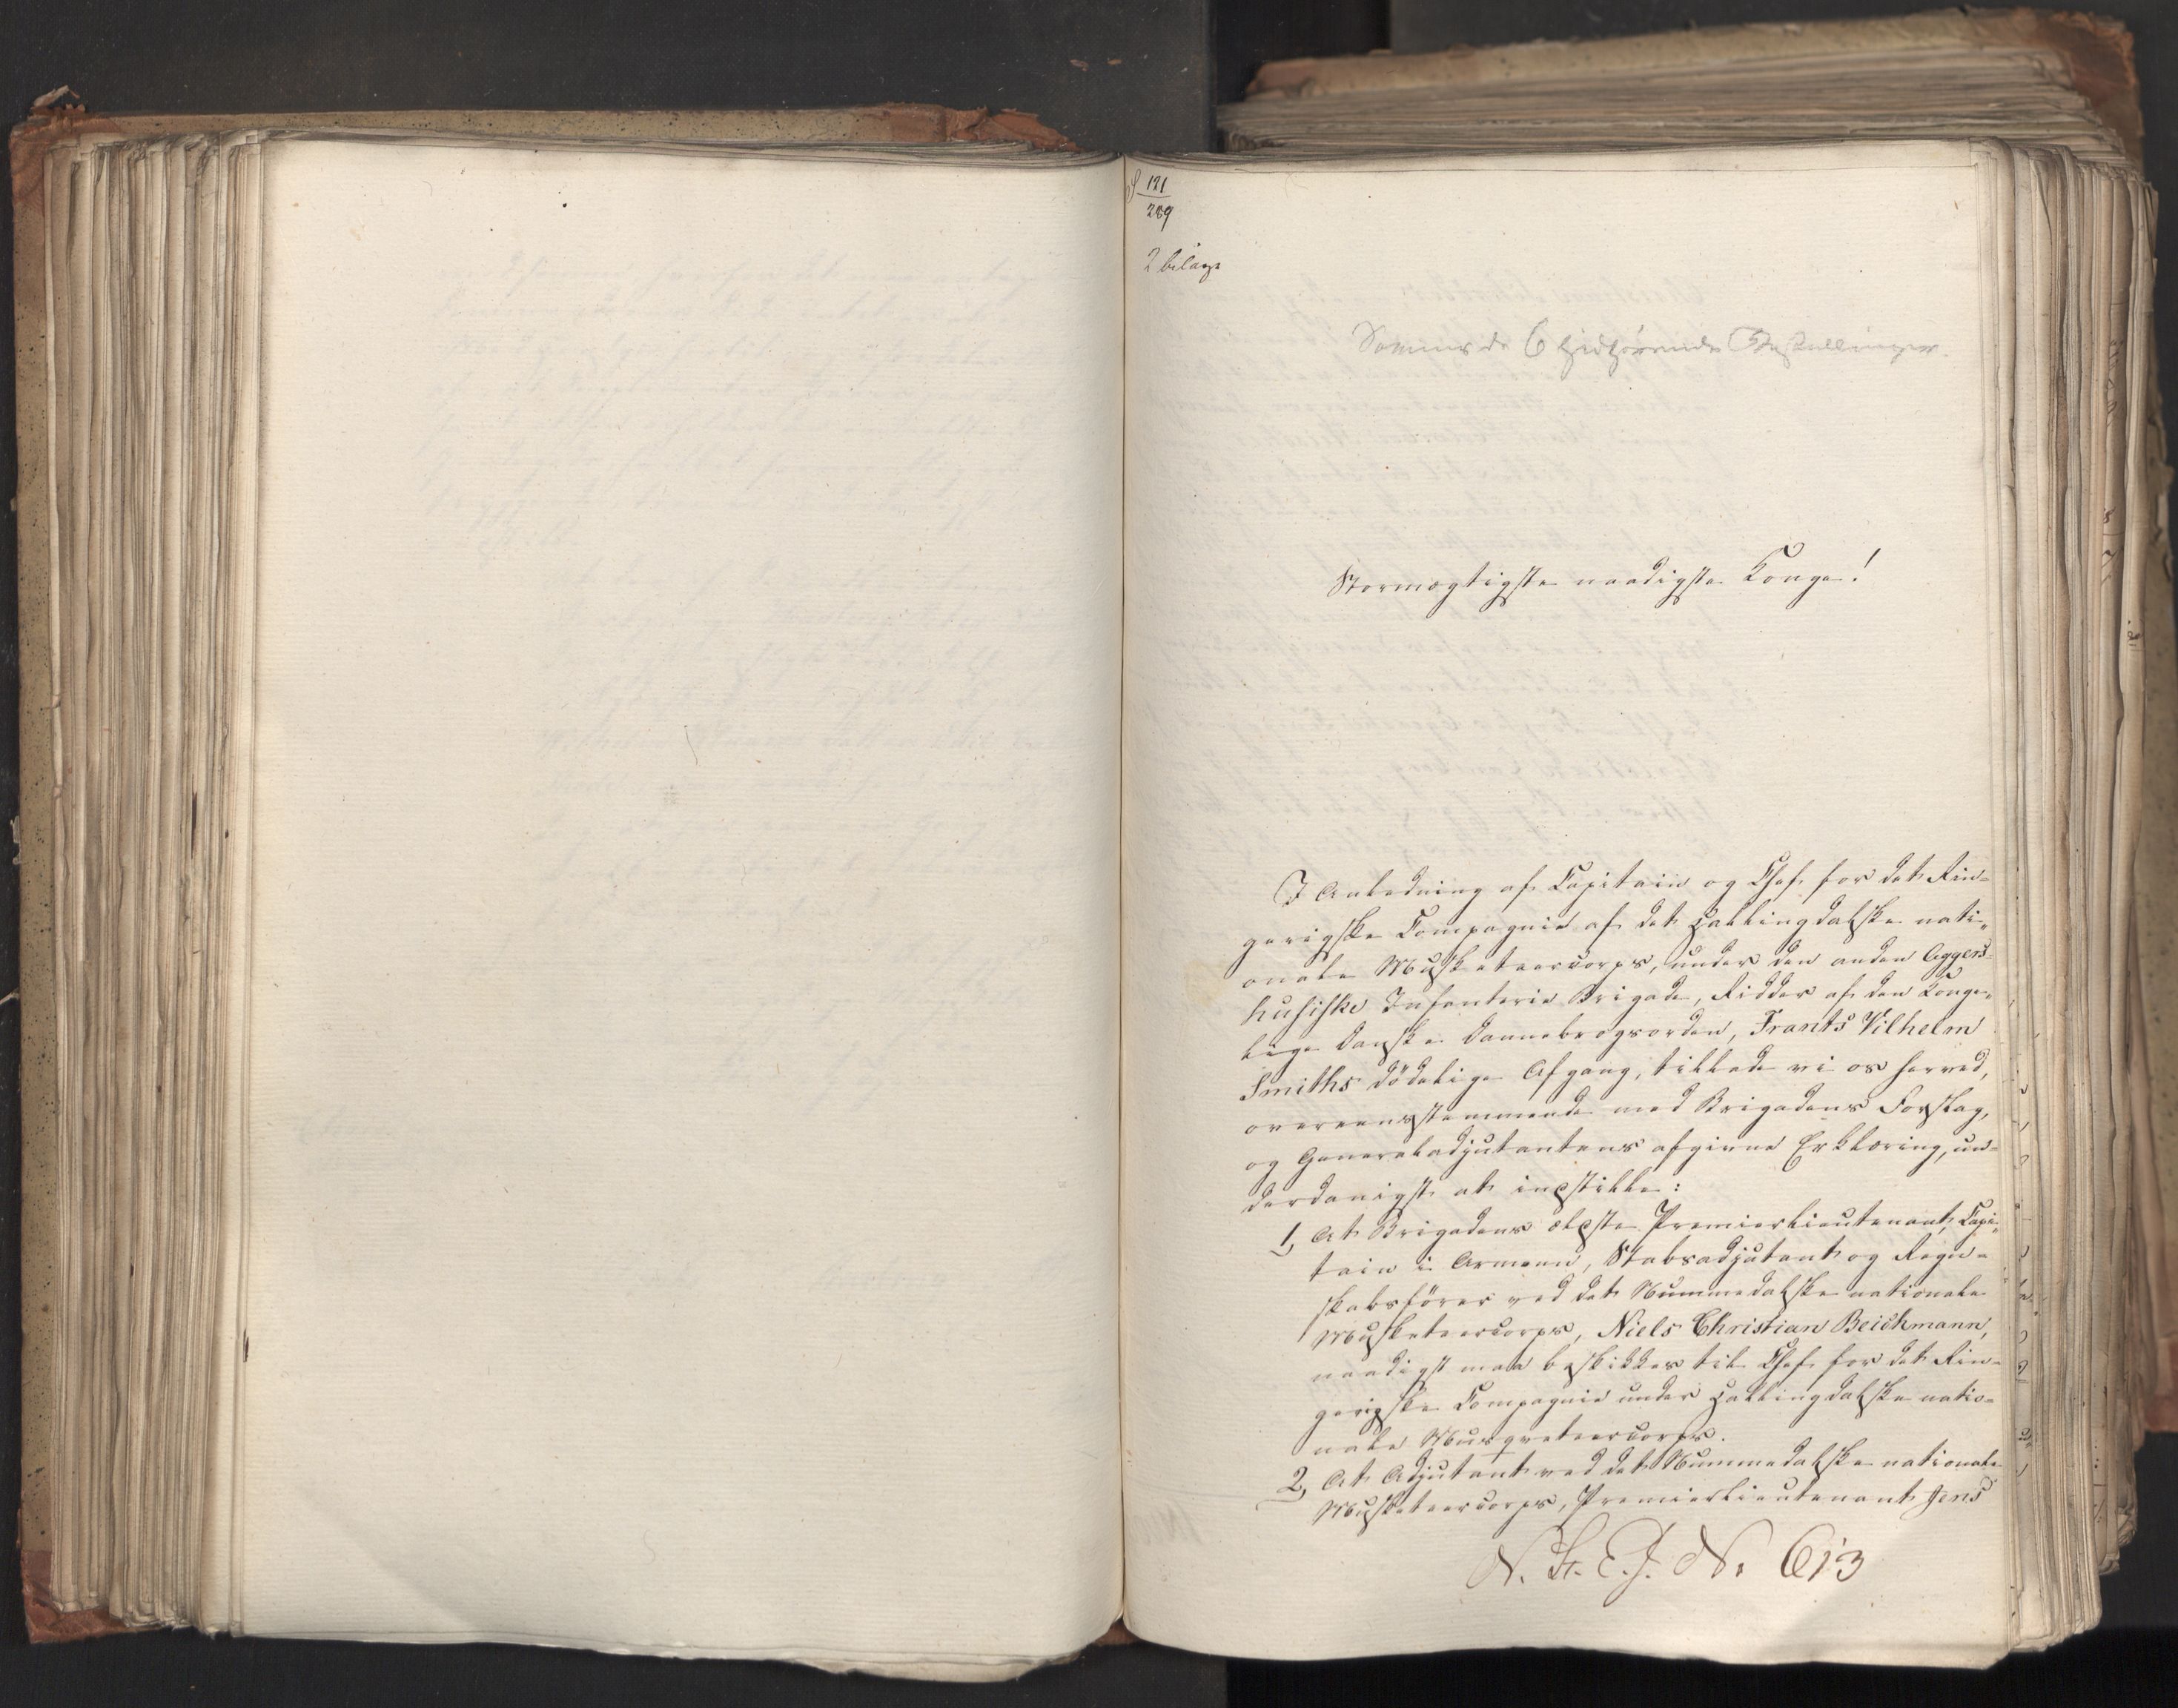 121
289
2 bilage
Sammes de 6 hidhørende Bestallinger.
Stormægtigste naadigste Konge!
I Anledning af Capitain og Chef for det Rin-
gerigske Compagnie af det Hallingdalske nati-
onale Musketeercorps, under den anden Aggers-
husiske Infanterie Brigade, Ridder af den Konge-
lige danske Dannebrogsorden, Frants Vilhelm
Smiths dödelige Afgang, tillade vi os herved,
overeensstemmende med Brigadens Forslag,
og Generaladjutantens afgivne Erklæring, un-
derdanigst at indstille:
1, At Brigadens ældste Premierlieutenant, Capi-
tain i Armeen, Stabsadjutant og Regn-
skabsförer ved det Nummedalske nationale
Musketeercorps, Niels Christian Beichmann,
naadigst maa beskikkes til Chef for det Rin-
gerigske Compagnie under Hallingdalske natio-
nale Musqveteercorps.
2, At Adjutant ved det Nummedalske nationale
Musketeercorps, Premierlieutenant Jens
N. St. E. J. No. 613